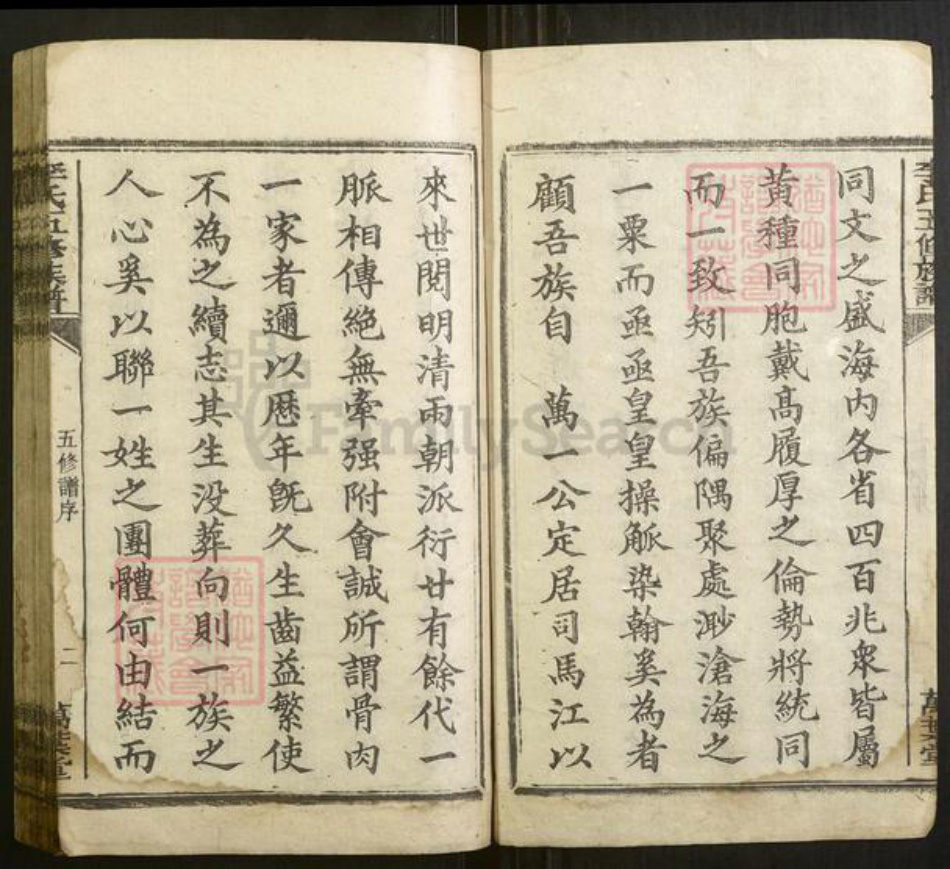 李氏五修族譜
同文之盛海內各省四百兆衆皆屬
黃種同胞戴高履厚之倫勢將統同
而一致矧吾族偏隅聚處渺滄海之
一粟而亟亟皇皇操觚染翰奚為者
顧吾族自　萬一公定居司馬江以
來世閱明清兩朝派衍廿有餘代一
脈相傳絕無牽强附會誠所謂骨肉
一家者邇以歷年旣久生齒益繁使
不為之續志其生没葬向則一族之
人心奚以聯一姓之團體何由結而
李氏五修族譜
五修譜序
二
FamilySearch